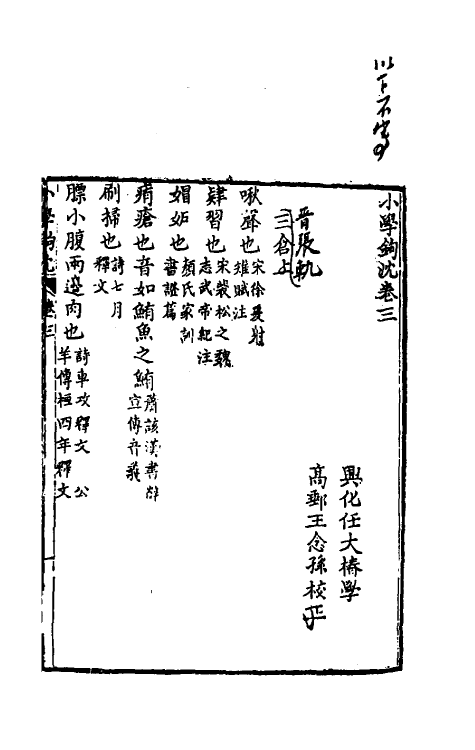 以下不寫
小學鉤沈卷三
興化任大椿學
高郵王念孫校正
晉張軌
三倉上
啾聲也宋徐爰射雉賦注
肄習也宋裴松之魏志武帝紀注
媢妬也顏氏家訓書證篇
痏瘡也音如鮪魚之鮪蕭該漢書薛宣傳音義
刷掃也詩七月釋文
膘小腹兩邊肉也詩車攻釋文 公羊傳桓四年釋文
小學鉤沈 卷三